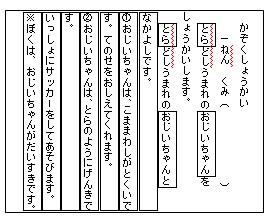 かぞくしょうかい
一ねん　くみ（　　　）
とらどしうまれのおじいちゃんを
しょうかいします。
とらどしうまれのおじいちゃんと
なかよしです。
①おじいちゃんは、こままわしがとくいで
す。てのせをおしえてくれます。
②おじいちゃんは、とらのようにげんきで
す。
いっしょにサッカーをしてあそびます。
※ぼくは、おじいちゃんがだいすきです。